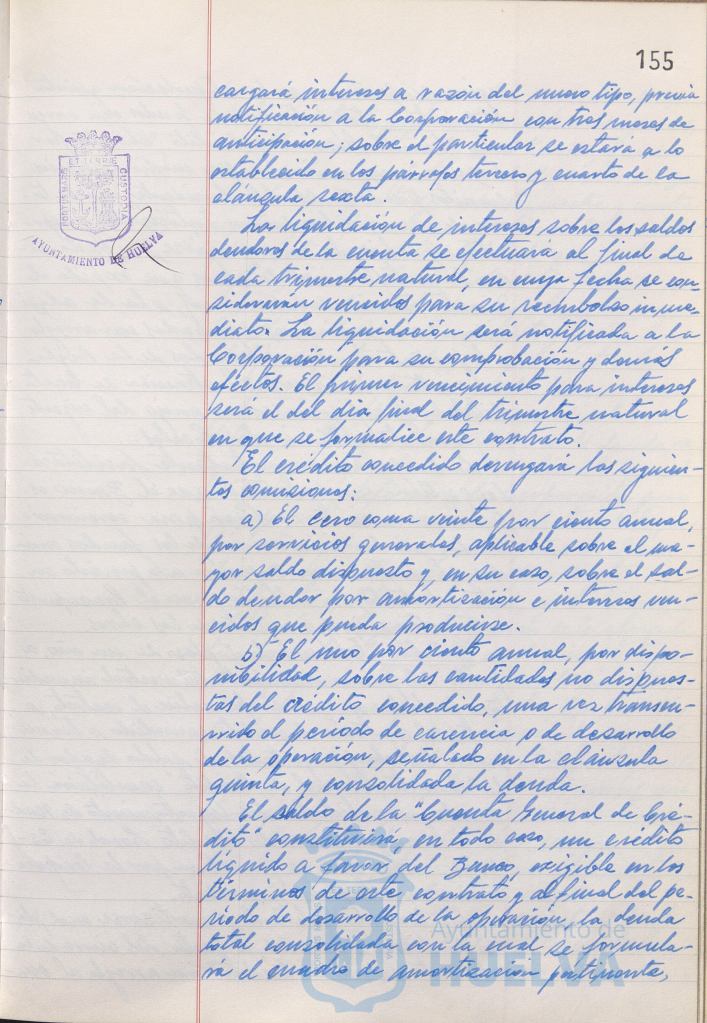 155
cargará intereses a razón del nuevo tipo, previa
notificación a la Corporación con tres meses de
anticipación; sobre el particular se estará a lo
establecido en los párrafos tercero y cuarto de la
cláusula sexta.
La liquidación de intereses sobre los saldos
deudores de la cuenta se efectuará al final de
cada trimestre natural, en cuya fecha se con-
siderarán vencidos para su reembolso inme-
diato. La liquidación será notificada a la
Corporación para su comprobación y demás
efectos. El primer vencimiento para intereses
será el del día final del trimestre natural
en que se formalice este contrato.
El crédito concedido devengará las siguien-
tes comisiones:
a) El cero coma veinte por ciento anual,
por servicios generales, aplicable sobre el ma-
yor saldo dispuesto y, en su caso, sobre el sal-
do deudor por amortización e intereses ven-
cidos que pueda producirse.
b) El uno por ciento anual, por dispo-
nibilidad, sobre las cantidades no dispues-
tas del crédito concedido, una vez transcu-
rrido el período de carencia o de desarrollo
de la operación, señalado en la cláusula
quinta, y consolidada la deuda.
El saldo de la "Cuenta General de Cré-
dito" constituirá, en todo caso, un crédito
líquido a favor del Banco, exigible en los
términos de este contrato y al final del pe-
riodo de desarrollo de la operación, la deuda
total consolidada con la cual se formula-
rá el cuadro de amortización pertinente,
PORTUS MARIS ET TERRE CUSTODIA
AYUNTAMIENTO DE HUELVA
Ayuntamiento de
HUELVA